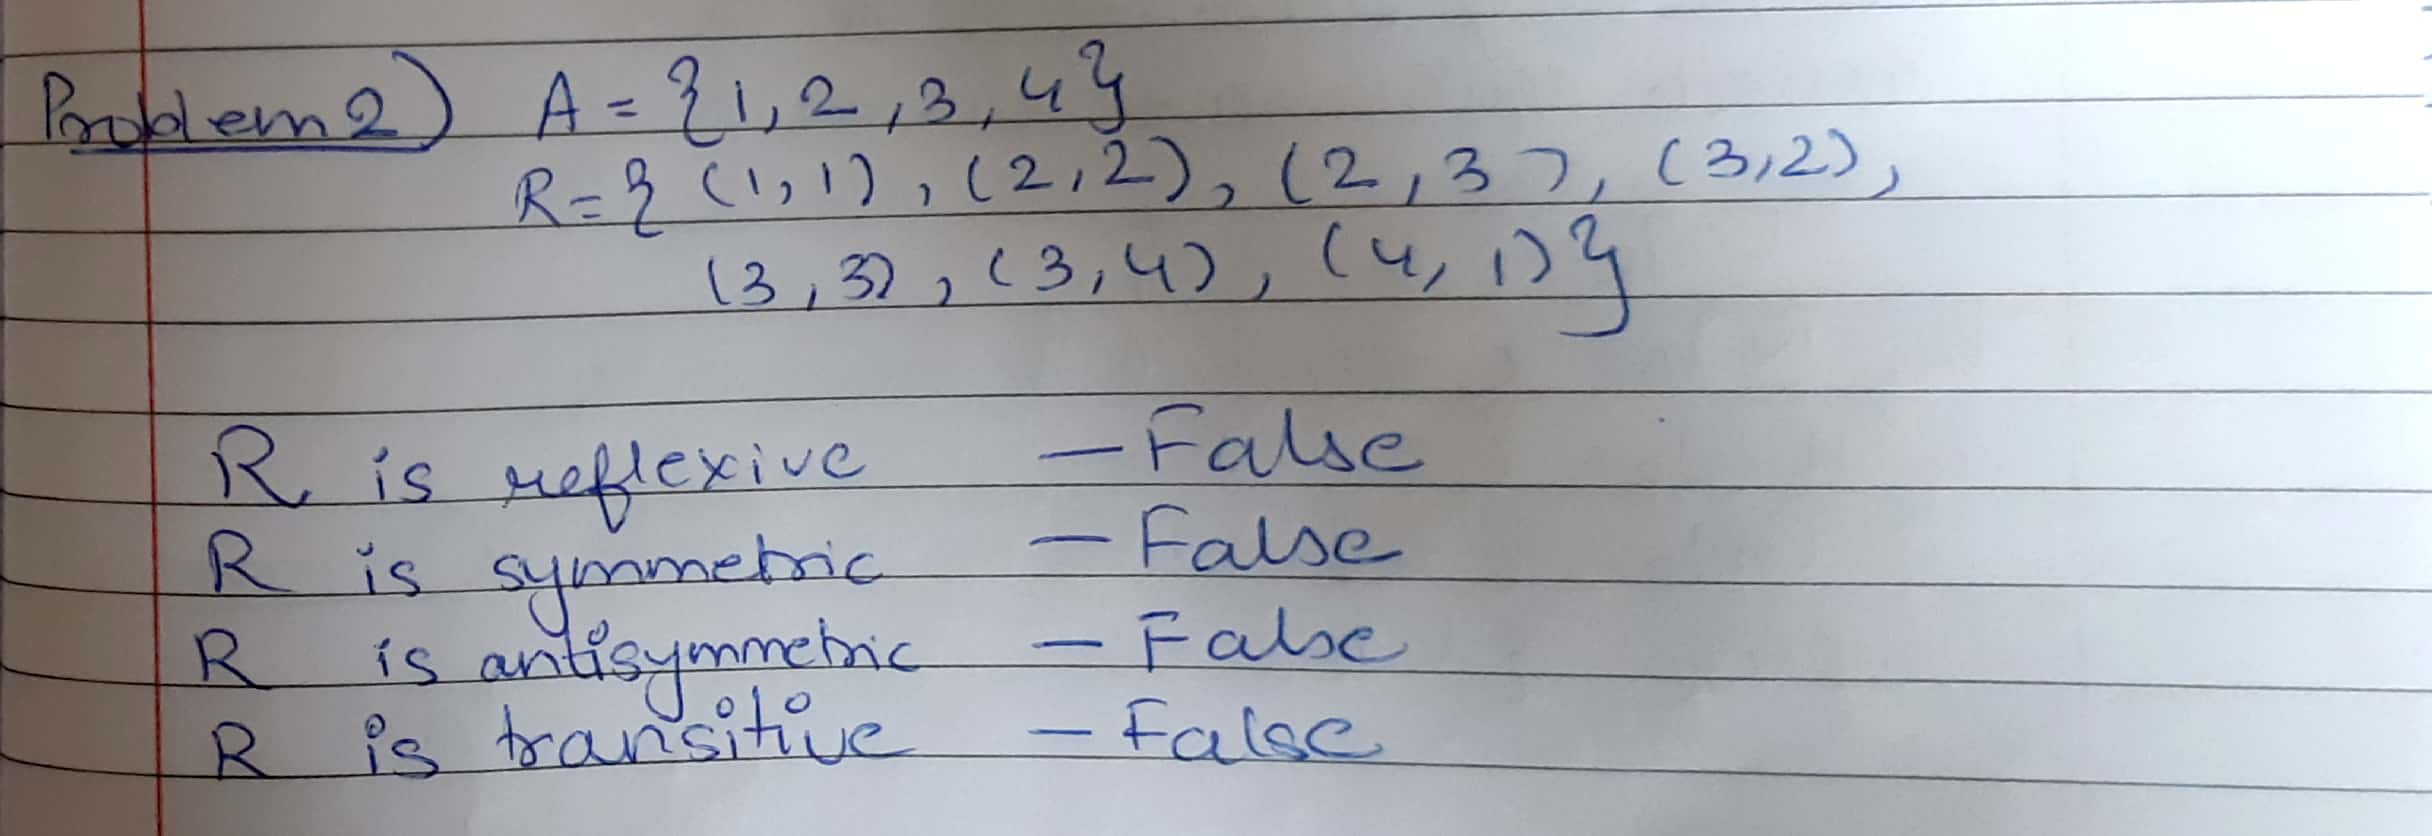 Problem 2) A = {1, 2, 3, 4}
R = { (1, 1), (2, 2), (2, 3), (3, 2),
(3, 3), (3, 4), (4, 1)}
R is reflexive - False
R is symmetric - False
R is antisymmetric - False
R is transitive - False